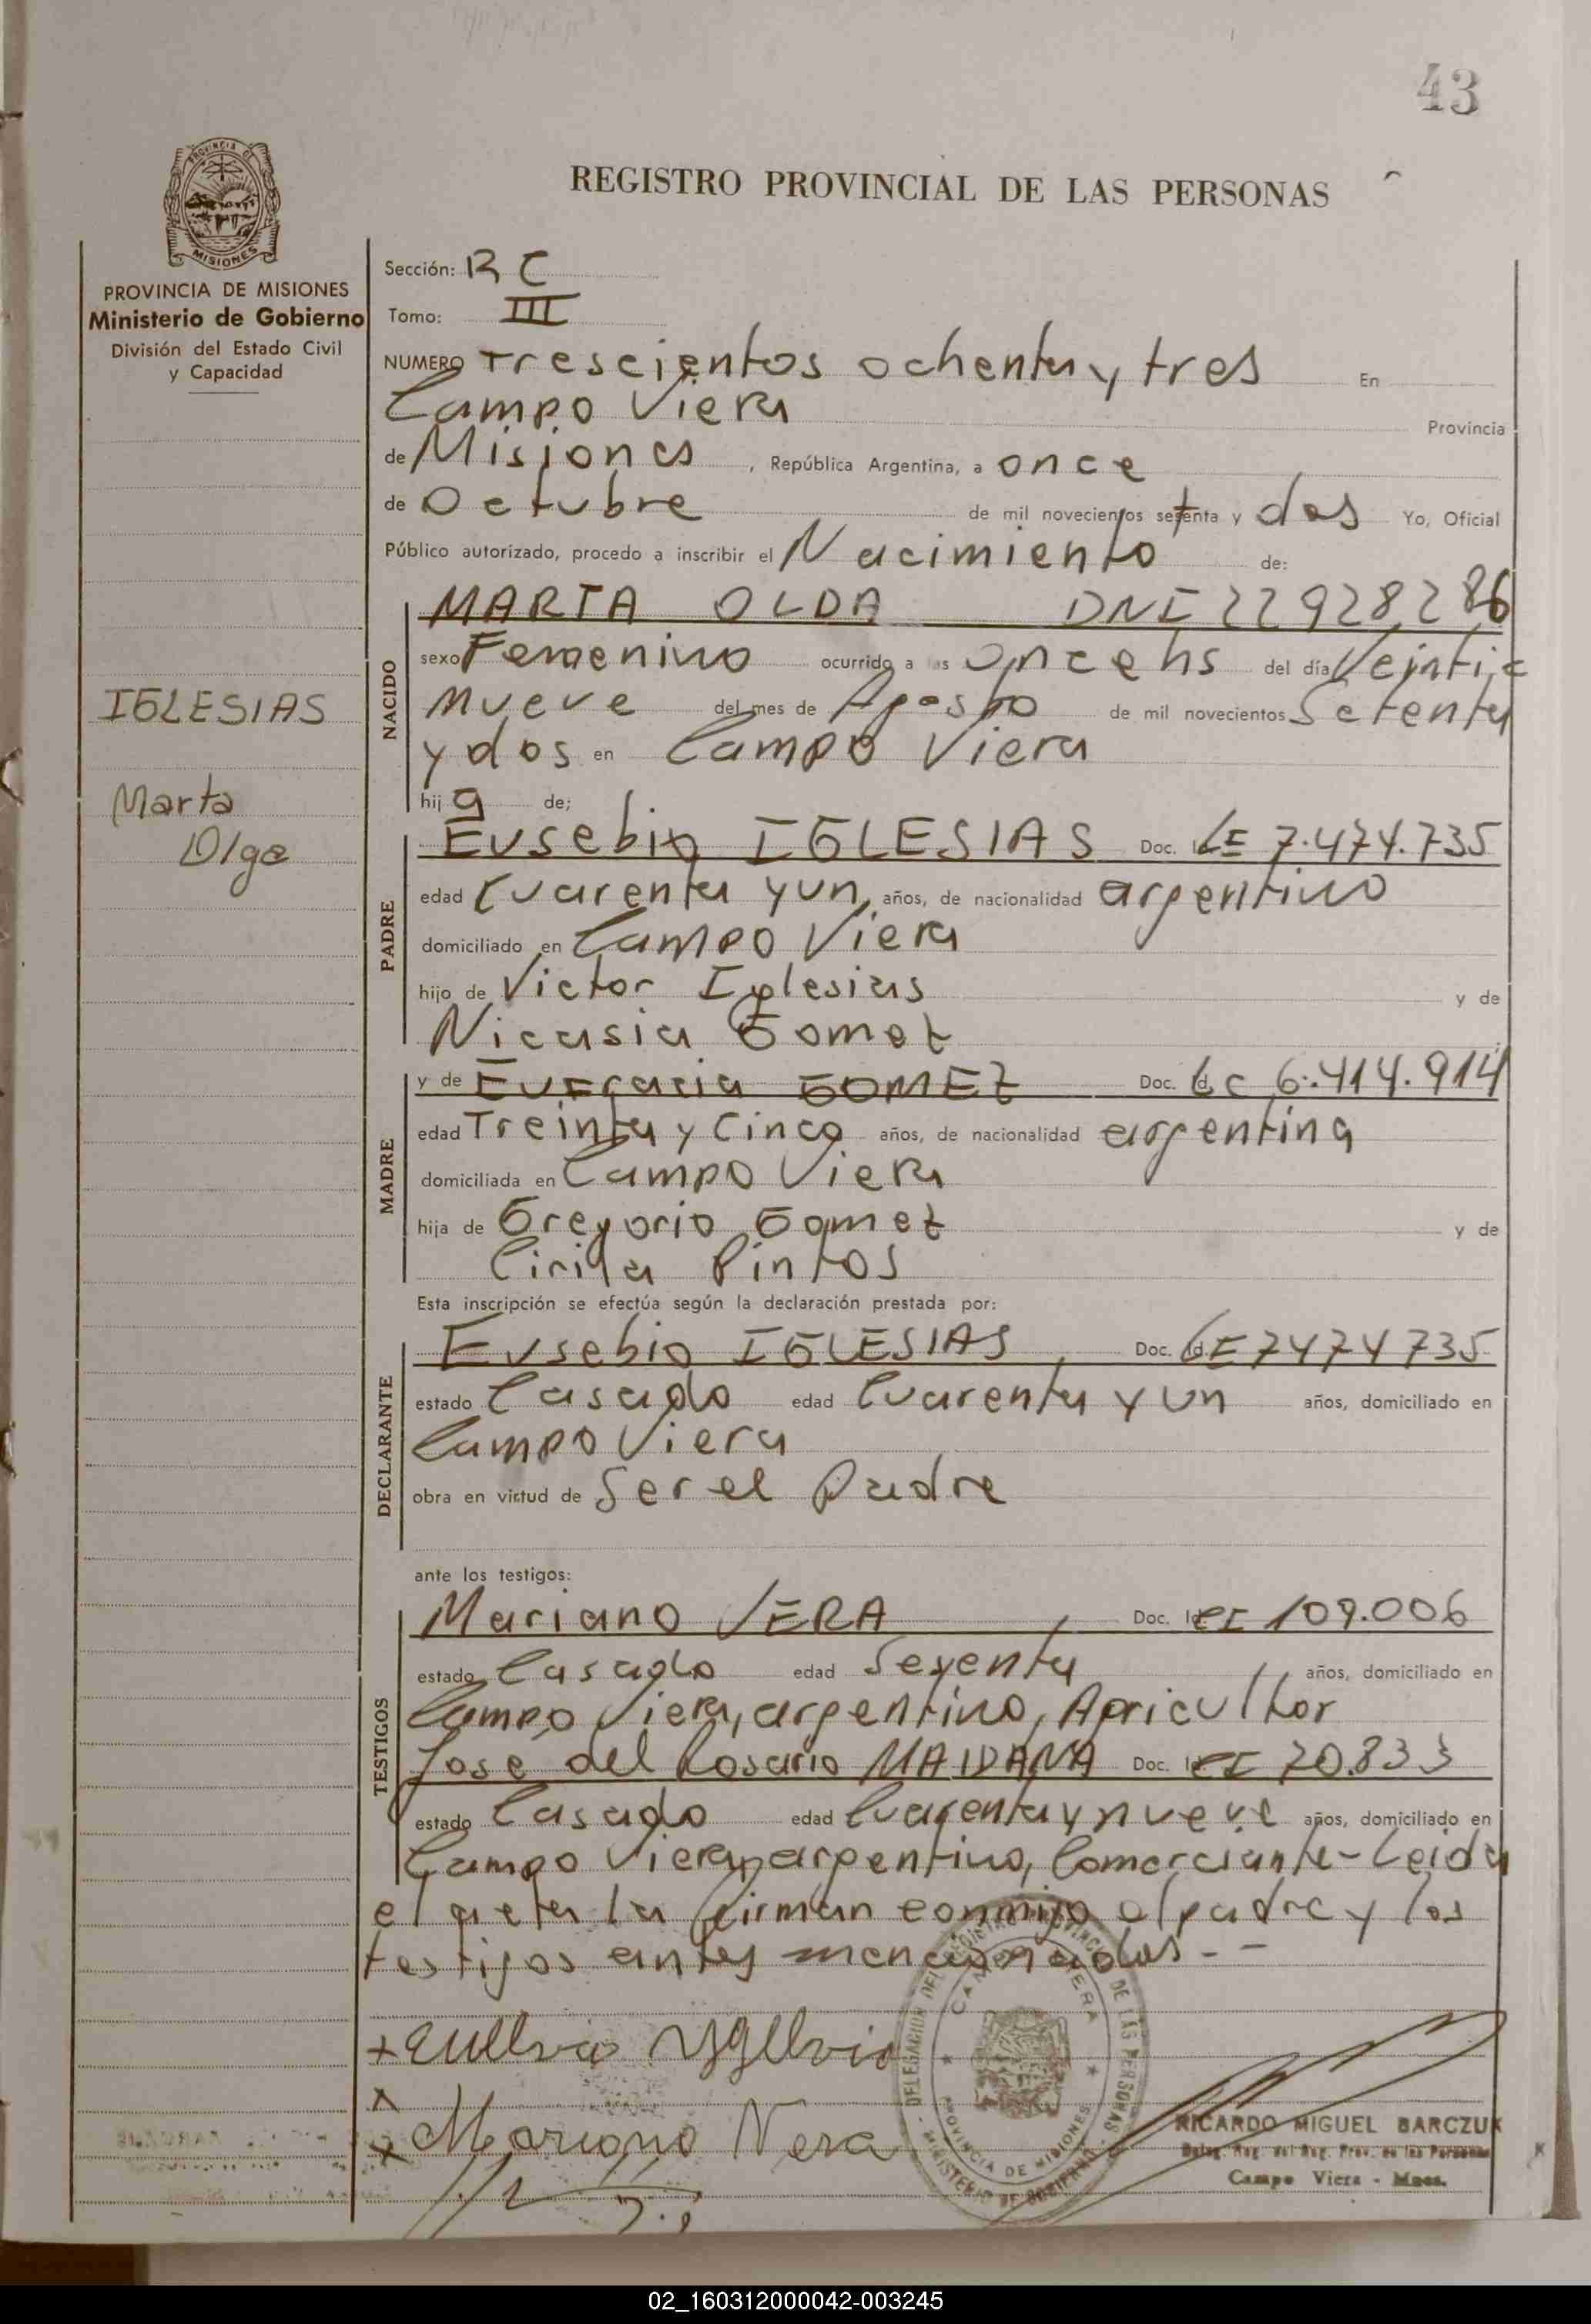 43
PROVINCIA DE
MISIONES
REGISTRO PROVINCIAL DE LAS PERSONAS
PROVINCIA DE MISIONES
Ministerio de Gobierno
División del Estado Civil
y Capacidad
IGLESIAS
Marta
Olga
Sección: R C
Tomo: III
NUMERO Trescientos ochenta y tres En
Campo Viera Provincia
de Misiones, República Argentina, a once
de Octubre de mil novecientos setenta y dos Yo, Oficial
Público autorizado, procedo a inscribir el Nacimiento de:
NACIDO
MARTA OLDA DNI 22928286
sexo Femenino ocurrido a las once hs del día Veinti
nueve del mes de Agosto de mil novecientos Setenta
y dos en Campo Viera
hij a de;
PADRE
Eusebio IGLESIAS Doc. LE 7.474.735
edad Cuarenta y un años, de nacionalidad argentino
domiciliado en Campo Viera
hijo de Victor Iglesias y de
Nicasia Gomez
MADRE
y de Eufracia GOMEZ Doc. Id. LC 6.414.914
edad Treinta y Cinco años, de nacionalidad argentina
domiciliada en Campo Viera
hija de Gregorio Gomez y de
Cirila Pintos
Esta inscripción se efectúa según la declaración prestada por:
DECLARANTE
Eusebio IGLESIAS, Doc. Id. LE 7474735
estado Casado edad Cuarenta y un años, domiciliado en
Campo Viera
obra en virtud de Ser el Padre
ante los testigos:
TESTIGOS
Mariano VERA, Doc. Id. CI 109.006
estado Casado edad años, domiciliado en
Campo Viera, argentino, Agricultor
Jose del Rosario MAIDANA Doc. Id. CI 70.833
estado Casado edad Cuarenta y nueve años, domiciliado en
Campo Viera, argentino, Comerciante - Leida
el acta la firman conmigo el padre y los
testigos antes mencionados - -
Mariano Vera
DELEGACION DEL REGISTRO PROVINCIAL DE LAS PERSONAS
CAMPO VIERA
PROVINCIA DE MISIONES
MINISTERIO DE GOBIERNO
RICARDO MIGUEL BARCZUK
Deleg. Reg. del Reg. Prov. de las Personas
Campo Viera - Mnes.
02_160312000042-003245